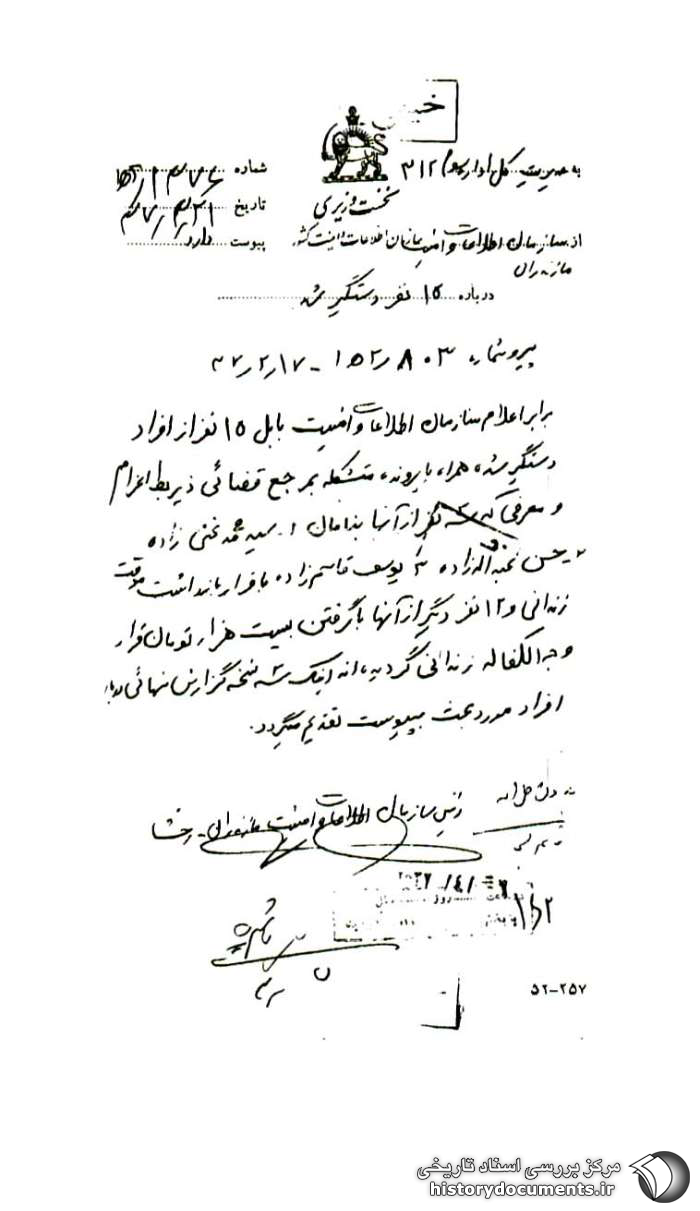 به مدیریت کل اداره سوم ۳۱۲
نخست وزیری
سازمان اطلاعات و امنیت کشور
شماره
تاریخ
پیوست دارد
از سازمان اطلاعات و امنیت
مازندران
درباره ۱۵ نفر دستگیر شده
پیرو شماره ۸۰۳
برابر اعلام سازمان اطلاعات و امنیت بابل ۱۵ نفر از افراد
دستگیر شده همراه با پرونده متشکله بمرجع قضائی ذیربط اعزام
و معرفی که سه نفر از آنها بنامان ۱- سید محمد غنی زاده
۲- حسن زاده ۳- یوسف قاسم زاده با قرار بازداشت موقت
زندانی و ۱۲ نفر دیگر از آنها با گرفتن بیست هزار تومان قرار
وجه الکفاله زندانی گردیده اند اینک سه نسخه گزارش نهائی درباره
افراد مورد بحث بپیوست تقدیم میگردد.
رئیس سازمان اطلاعات و امنیت مازندران-
۵۲-۲۵۷
مرکز بررسی اسناد تاریخی
historydocuments.ir